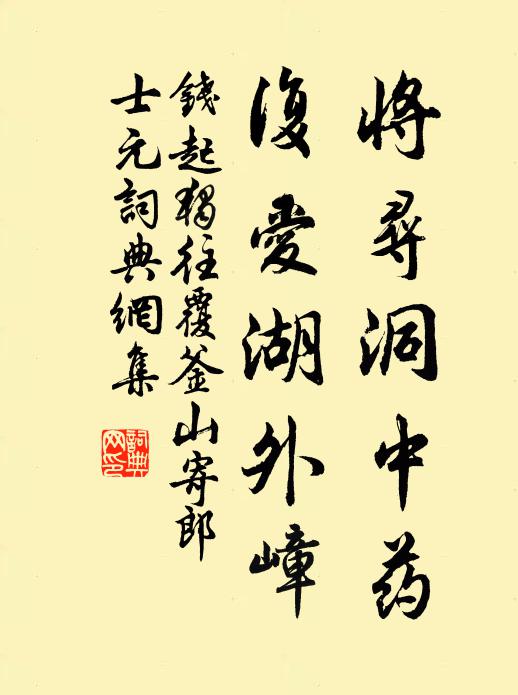 将尋洞中药
復愛湖外嶂
錢起獨往覆釜山寄郎
士元詞典網集
詞典
网印